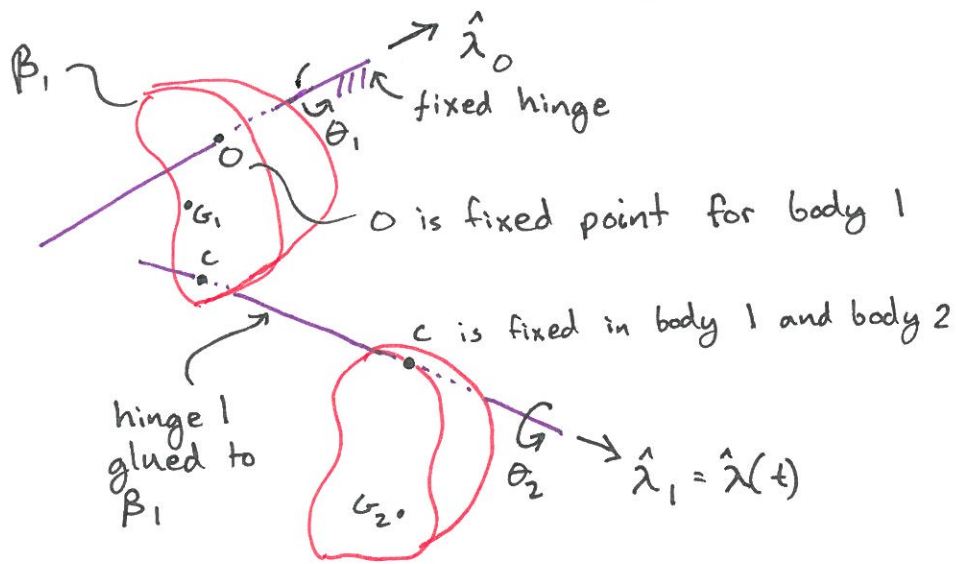 λ̂₀
β₁
fixed hinge
θ₁
O
G₁
O is fixed point for body 1
C
C is fixed in body 1 and body 2
hinge 1
glued to
β₁
θ₂
λ̂₁ = λ̂(t)
G₂